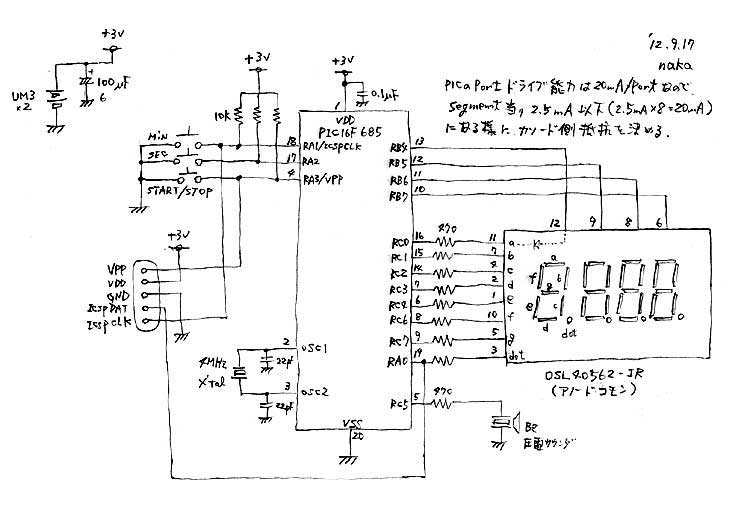 '12.9.17
naka
PICのportドライブ能力は20mA/portなので
segment当り2.5mA以下(2.5mA×8=20mA)
になる様に、カソード側抵抗を決める.
+3V
UM3
×2
+
100μF
6
+3V
+3V
0.1μF
10k
MIN
SEC
START/STOP
1
VDD
PIC16F685
18
RA1/ICSPCLK
17
RA2
4
RA3/VPP
RB4
13
RB5
12
RB6
11
RB7
10
12
9
8
6
+3V
VPP
VDD
GND
ICSPDAT
ICSPCLK
RC0
16
470
11
a
K
RC1
15
7
b
RC2
14
4
c
RC3
7
2
d
RC4
6
1
e
RC6
8
10
f
RC7
9
5
g
RA0
19
3
dot
a
f
b
g
e
c
d
dot
OSL40562-JR
(アノードコモン)
4MHz
X'tal
2
OSC1
22pF
3
OSC2
22pF
RC5
5
470
BZ
圧電サウンダ
VSS
20